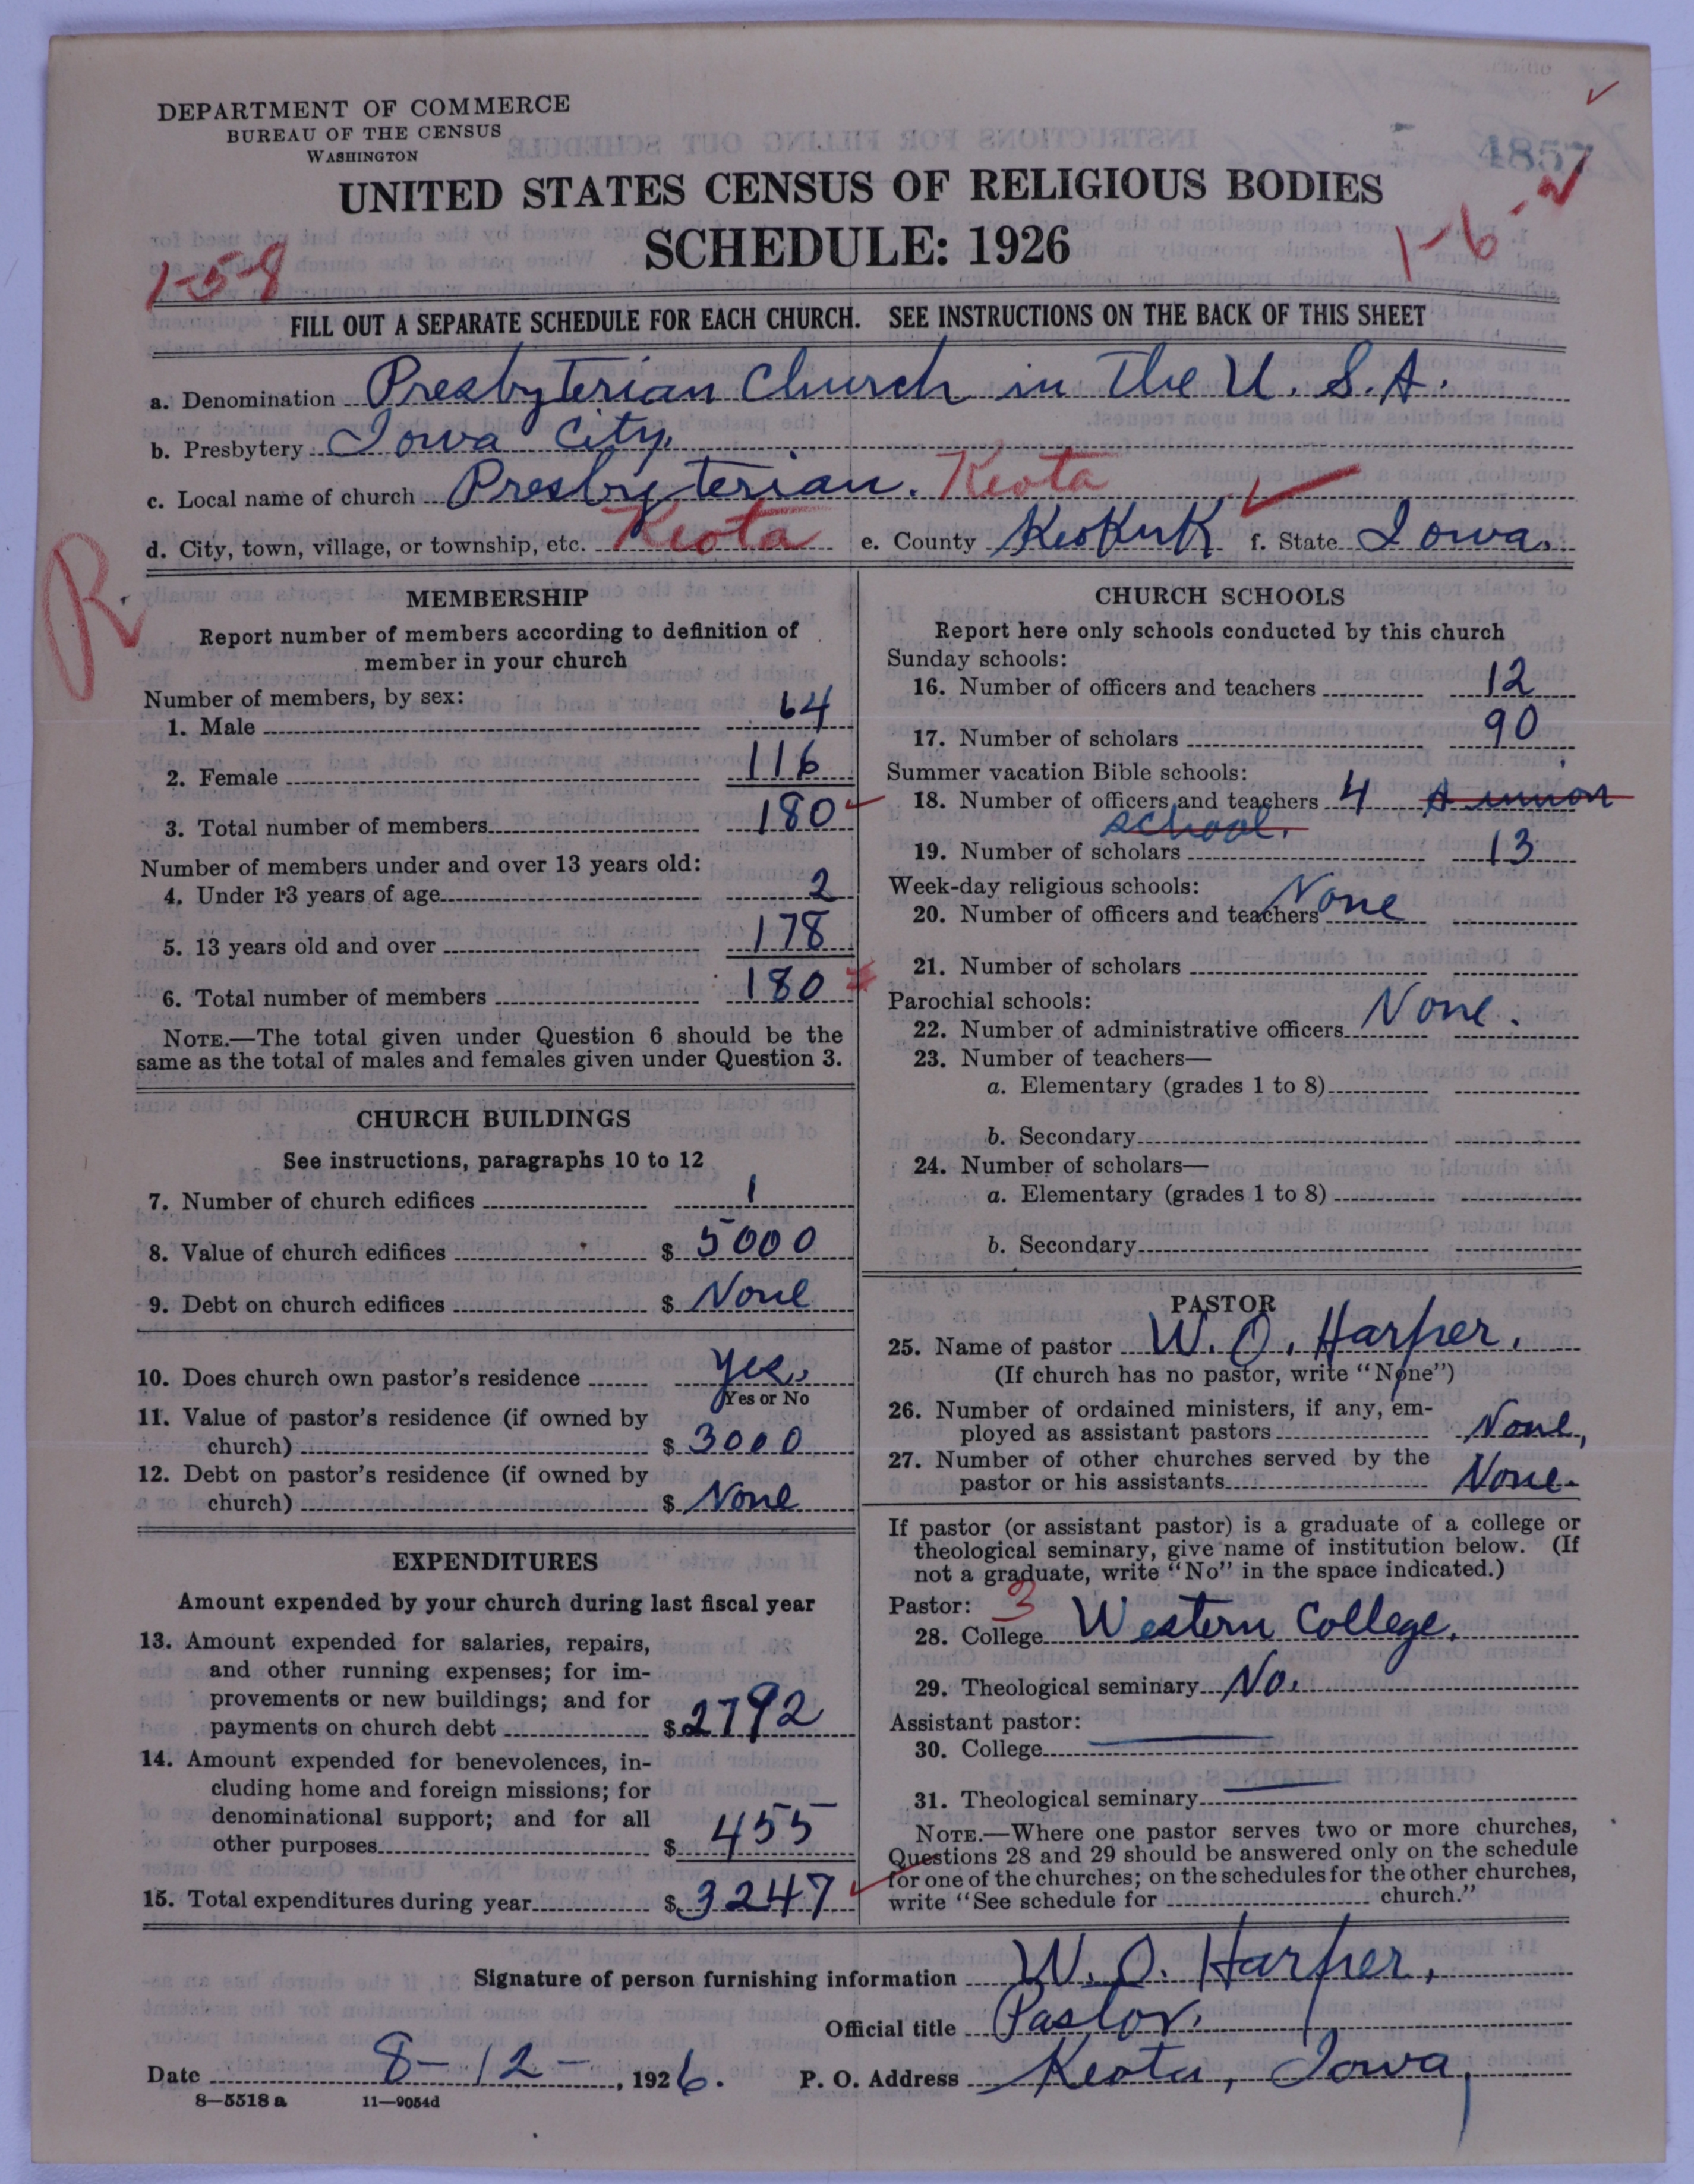 DEPARTMENT OF COMMERCE
BUREAU OF THE CENSUS
WASHINGTON
4857
UNITED STATES CENSUS OF RELIGIOUS BODIES
SCHEDULE: 1926
1-5-8
1-6-
FILL OUT A SEPARATE SCHEDULE FOR EACH CHURCH. SEE INSTRUCTIONS ON THE BACK OF THIS SHEET
a. Denomination Presbyterian Church in the U.S.A.
b. Presbytery Iowa City.
c. Local name of church Presbyterian. Keota
d. City, town, village, or township, etc. Keota e. County Keokuk f. State Iowa.
R
MEMBERSHIP
Report number of members according to definition of
member in your church
Number of members, by sex:
1. Male 64
2. Female 116
3. Total number of members 180
Number of members under and over 13 years old:
4. Under 13 years of age 2
5. 13 years old and over 178
6. Total number of members 180
NOTE.—The total given under Question 6 should be the
same as the total of males and females given under Question 3.
CHURCH BUILDINGS
See instructions, paragraphs 10 to 12
7. Number of church edifices 1
8. Value of church edifices $ 5000
9. Debt on church edifices $ None
10. Does church own pastor's residence Yes.
Yes or No
11. Value of pastor's residence (if owned by
church) $ 3000
12. Debt on pastor's residence (if owned by
church) $ None
EXPENDITURES
Amount expended by your church during last fiscal year
13. Amount expended for salaries, repairs,
and other running expenses; for im-
provements or new buildings; and for
payments on church debt $ 2792
14. Amount expended for benevolences, in-
cluding home and foreign missions; for
denominational support; and for all
other purposes $ 455
15. Total expenditures during year $ 3247
CHURCH SCHOOLS
Report here only schools conducted by this church
Sunday schools:
16. Number of officers and teachers 12
17. Number of scholars 90
Summer vacation Bible schools:
18. Number of officers and teachers 4 A union
school.
19. Number of scholars 13
Week-day religious schools:
20. Number of officers and teachers None
21. Number of scholars
Parochial schools:
22. Number of administrative officers None.
23. Number of teachers—
a. Elementary (grades 1 to 8)
b. Secondary
24. Number of scholars—
a. Elementary (grades 1 to 8)
b. Secondary
PASTOR
25. Name of pastor W. O. Harper.
(If church has no pastor, write "None")
26. Number of ordained ministers, if any, em-
ployed as assistant pastors None,
27. Number of other churches served by the
pastor or his assistants None.
If pastor (or assistant pastor) is a graduate of a college or
theological seminary, give name of institution below. (If
not a graduate, write "No" in the space indicated.)
Pastor: 3
28. College Western College.
29. Theological seminary No.
Assistant pastor:
30. College
31. Theological seminary
NOTE.—Where one pastor serves two or more churches,
Questions 28 and 29 should be answered only on the schedule
for one of the churches; on the schedules for the other churches,
write "See schedule for church."
Signature of person furnishing information W. O. Harper.
Official title Pastor.
Date 8-12-, 1926. P. O. Address Keota, Iowa,
8—5518 a 11—9054d